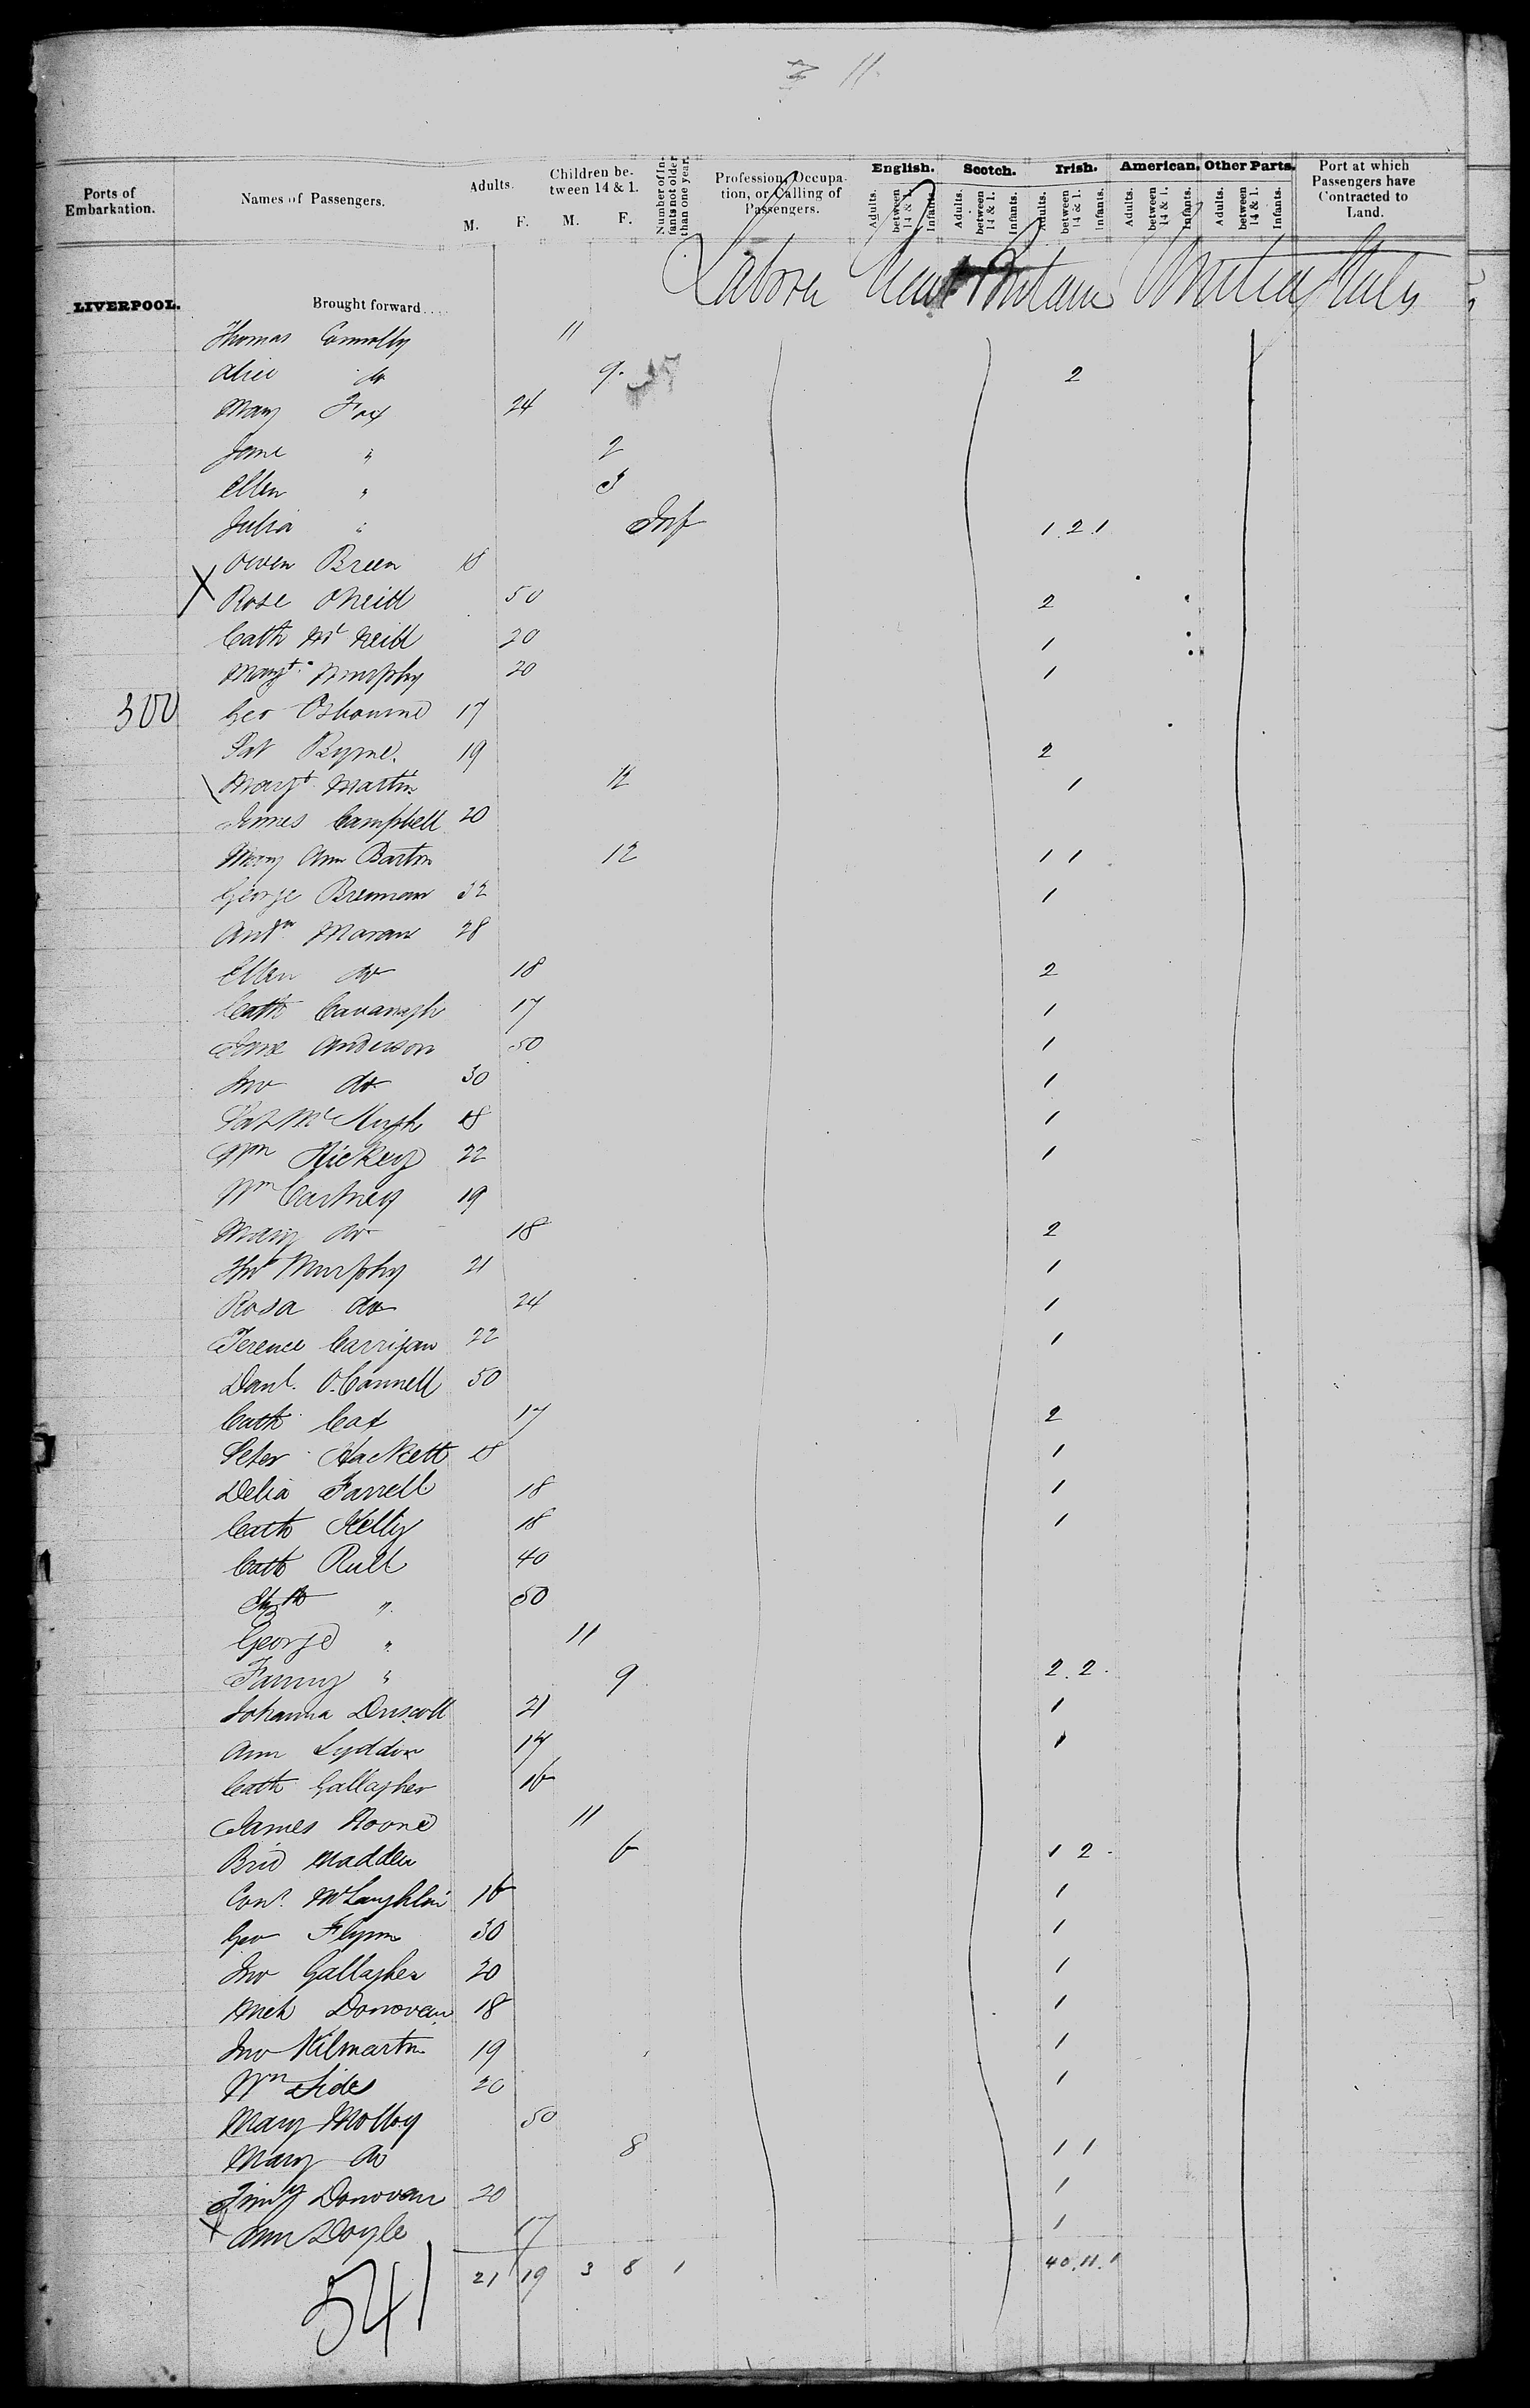 11
Ports of Embarkation. Names of Passengers. Adults. M. F. Children between 14 & 1. M. F. Number of Infants not older than one year. Profession, Occupation, or Calling of Passengers. English. Adults. between 14 & 1. Infants. Scotch. Adults. between 14 & 1. Infants. Irish. Adults. between 14 & 1. Infants. American. Adults. between 14 & 1. Infants. Other Parts. Adults. between 14 & 1. Infants. Port at which Passengers have Contracted to Land.
LIVERPOOL. Brought forward.... Britain
Thomas Connolly 11
Alice do 9. 2
Mary Fox 24
Jane " 2
Ellen " 3
Julia " Inf 1.2.1
Owen Breen 18
X Rose O'Neill 50 2
Cath Mc Neill 20 1
Margt. Murphy 20 1
300 Geo Osbourne 17
Pat Byrne. 19 2
Margt Martin 12 1
James Campbell 20
Mary Ann Barton 12 1 1
George Brennan 32 1
Andw Moran 28
Ellen do 18 2
Cath Cavanagh 17 1
Jane Anderson 50 1
Jno do 30 1
Pat Mc Hugh 18 1
Wm Hickey 22 1
Wm Cartney 19
Mary do 18 2
Murphy 21 1
Rosa do 24 1
Terence Carrigan 22 1
Danl. O.Connell 50
Cath Cox 17 2
Peter Hackett 18 1
Delia Farrell 18 1
Cath Kelly 18 1
Cath 40
" 50
George " 11
Fanny " 9 2.2.
Johanna Driscoll 21 1
Ann Lyddon 17 1
Cath Gallagher 16
James Noone 11
Brid Madden 6 1 2
Con. McLaughlin 16 1
Geo Flynn 30 1
Jno Gallagher 20 1
Mich Donovan 18 1
Jno Kilmartin 19 1
Wm Sides 20 1
Mary Molloy 50
Mary do 8 1 1
Timy Donovan 20 1
X Ann Doyle 17 1
21 19 3 8 1 40.11.1
541